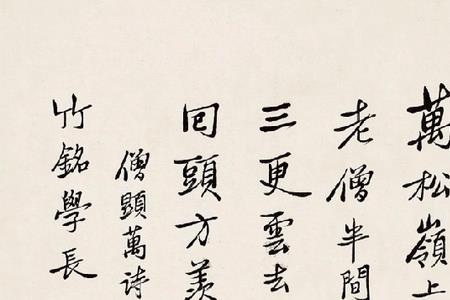 萬松嶺上
老僧半間
三更雲去
回頭方羨
僧顯萬詩
竹銘學長